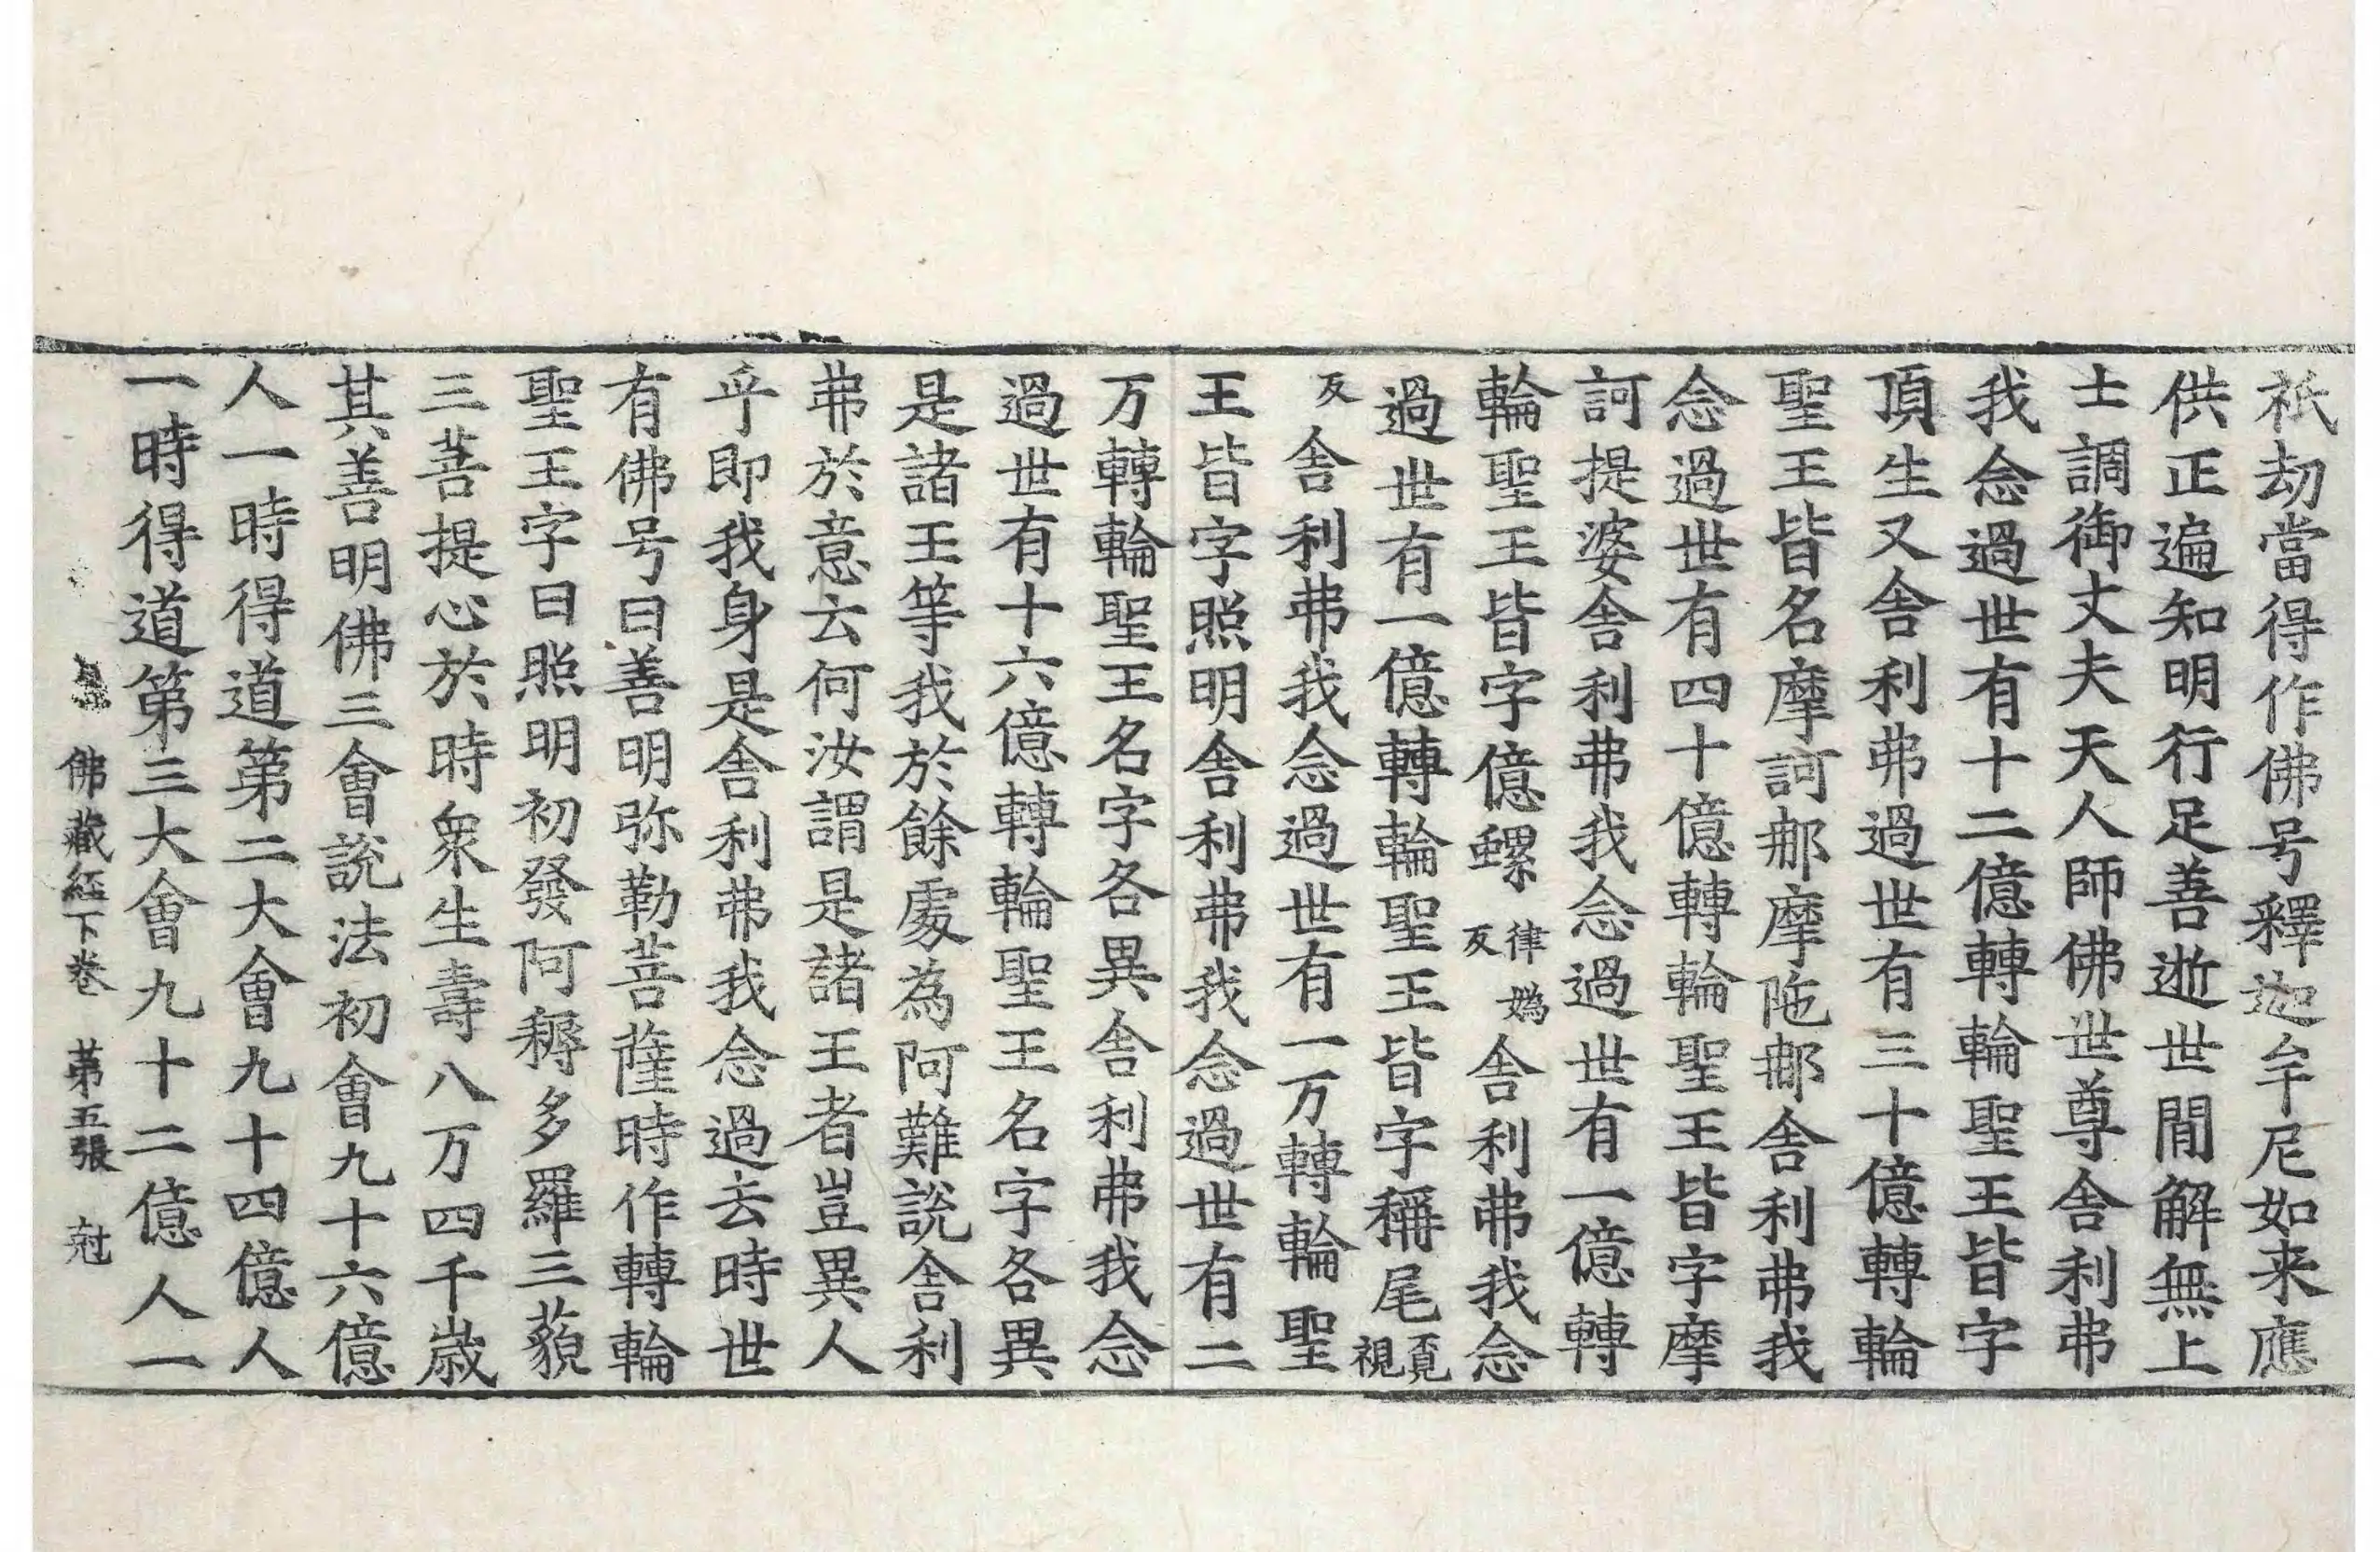 祇劫當得作佛号釋迦牟尼如来應
供正遍知明行足善逝世間解無上
士調御丈夫天人師佛世尊舎利弗
我念過世有十二億轉輪聖王皆字
頂生又舎利弗過世有三十億轉輪
聖王皆名摩訶那摩陁那舎利弗我
念過世有四十億轉輪聖王皆字摩
訶提婆舎利弗我念過世有一億轉
輪聖王皆字億螺律嬀反舎利弗我念
過世有一億轉輪聖王皆字稱尾覔視
反舎利弗我念過世有一万轉輪聖
王皆字照明舎利弗我念過世有二
万轉輪聖王名字各異舎利弗我念
過世有十六億轉輪聖王名字各異
是諸王等我於餘處為阿難説舎利
弗於意云何汝謂是諸王者豈異人
乎即我身是舎利弗我念過去時世
有佛号曰善明弥勒菩薩時作轉輪
聖王字曰照明初發阿耨多羅三藐
三菩提心於時衆生壽八万四千歳
其善明佛三會説法初會九十六億
人一時得道第二大會九十四億人
一時得道第三大會九十二億人一
佛藏経下卷 第五張 尅